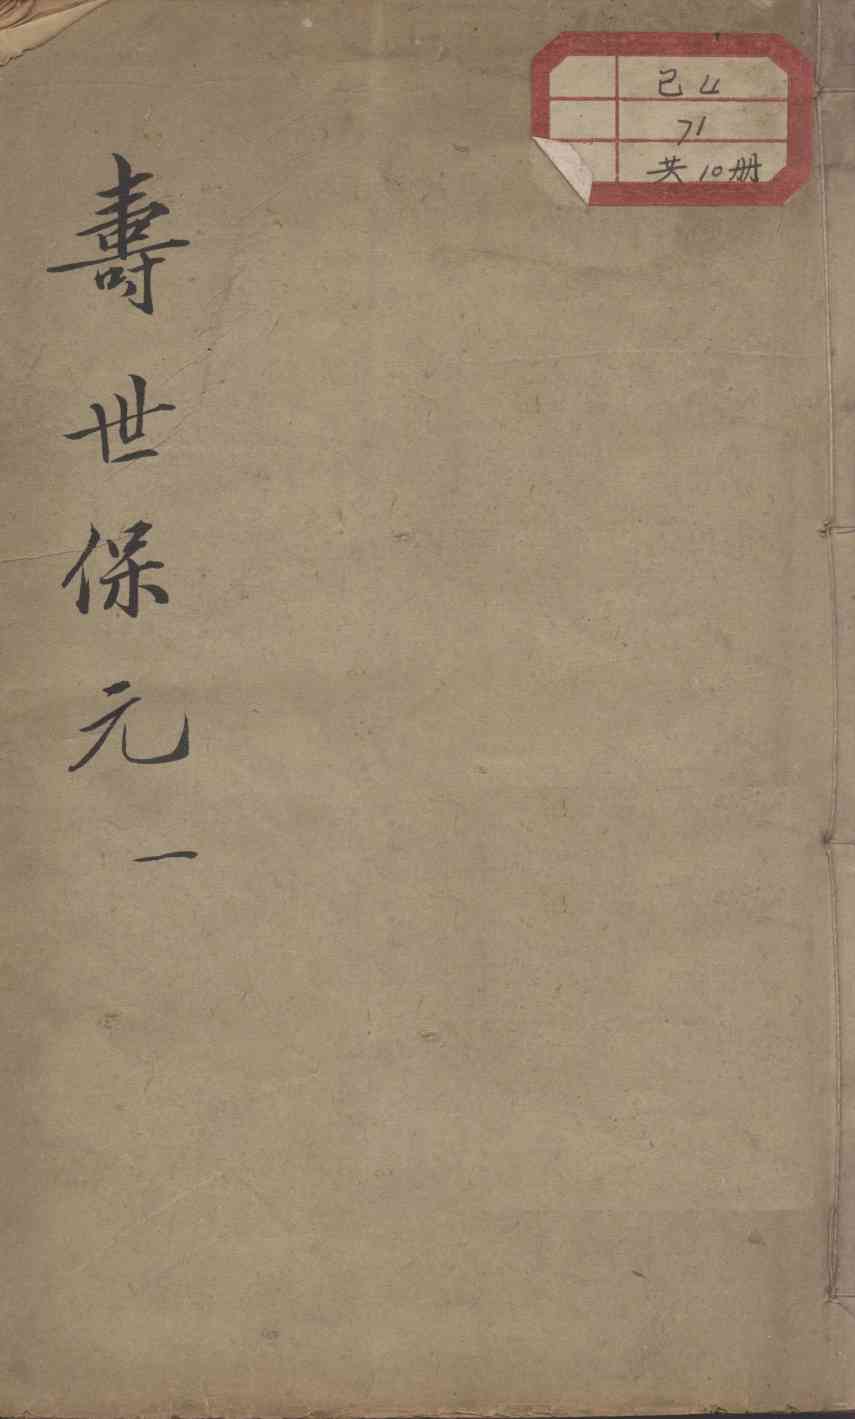 壽世保元
一
己4
71
共10册